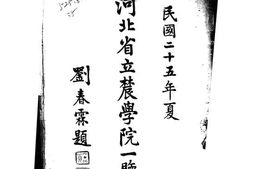 民國二十五年夏
河北省立農學院一覽
劉春霖題